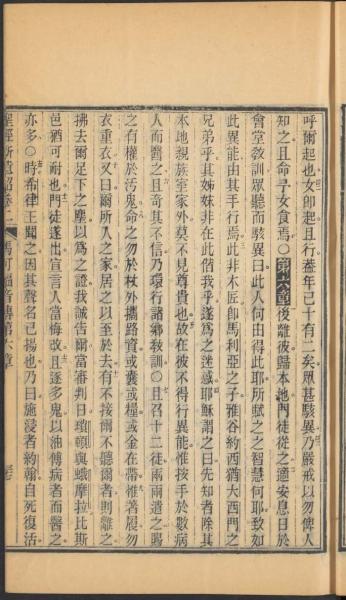 呼爾起也女卽起且行蓋年已十有二矣眾甚駭異乃嚴戒以勿俾人
知之且命予女食焉〇第六章後離彼歸本地門徒從之適安息日於
會堂敎訓眾聽而駭異曰此人何由得此耶所賦之之智慧何耶致如
此異能由其手行焉此非木匠卽馬利亞之子雅各約西猶大西門之
兄弟乎其姊妹非在此偕我乎遂為之迷惑耶穌謂之曰先知者除其
本地親族室家外莫不見尊貴也故在彼不得行異能惟按手於數病
人而醫之且奇其不信乃環行諸鄉敎訓〇且召十二徒兩兩遣之賜
之有權於汚鬼命之勿於杖外攜路資或囊或糧或金在帶惟著履勿
衣重衣又曰爾所入之家居之以至於去有不接爾不聽爾者則離之
拂去爾足下之塵以為之證我誠告爾當審判日瑣頓與蛾摩拉比斯
邑猶可耐也門徒遂出宣言人當悔改且逐多鬼以油傅病者而醫之
亦多〇時希律王聞之因其聲名已揚也乃曰施浸者約翰自死復活
聖經新遺詔卷二 馬可福音傳第六章